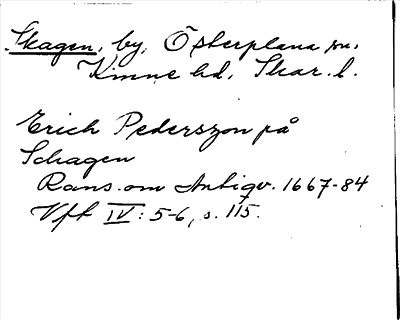 Skagen, by, Österplana sn.
Kinne hd, Skar. l.
Erich Pederszon på
Schagen
Rans. om Antiqv. 1667-84
Vft IV: 5-6, s. 115.